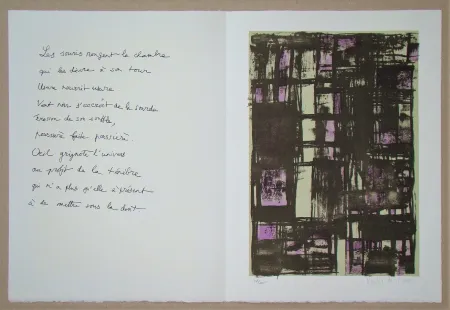 Les souris rongent la chambre
qui les dévore à son tour
Usure nourrit usure
Vient non s'accroît de le sourde
de son
poussière faite poussière.
Oeil grignote l'univers
au profit de la ténèbre
qui n'a plus qu'elle à présent
à se mettre sous la dent